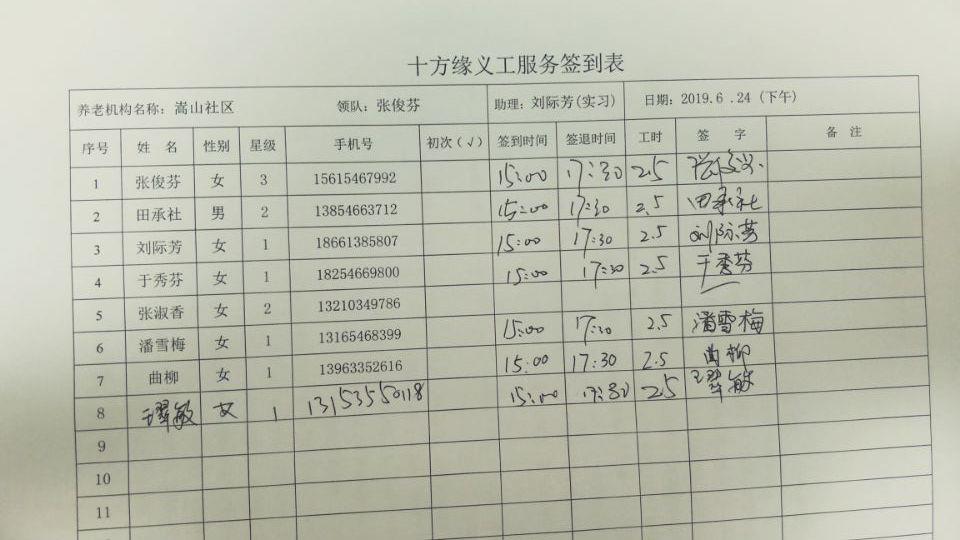 十方缘义工服务签到表
养老机构名称：嵩山社区 领队：张俊芬 助理：刘际芳(实习) 日期：2019.6 .24 (下午)
序号 姓 名 性别 星级 手机号 初次（√） 签到时间 签退时间 工时 签 字 备 注
1 张俊芬 女 3 15615467992 15:00 17:30 2.5
2 田承社 男 2 13854663712 15:00 17:30 2.5 田承社
3 刘际芳 女 1 18661385807 15:00 17:30 2.5 刘际芳
4 于秀芬 女 1 18254669800 15:00 17:30 2.5 于秀芬
5 张淑香 女 2 13210349786
6 潘雪梅 女 1 13165468399 15:00 17:30 2.5 潘雪梅
7 曲柳 女 1 13963352616 15:00 17:30 2.5 曲柳
8 女 1 13153550118 15:00 17:30 2.5
9
10
11